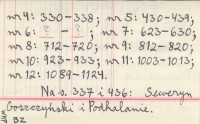 nr 4: 330-338; nr 5: 430-439;
nr 6: ? - ? ; nr 7: 623-630;
nr 8: 712-720; nr 9: 812-820;
nr 10: 923-933; nr 11: 1003-1013;
nr 12: 1089-1124.
Na s. 337 i 436: Seweryn
Goszczyński i Podhalanie.
BZ